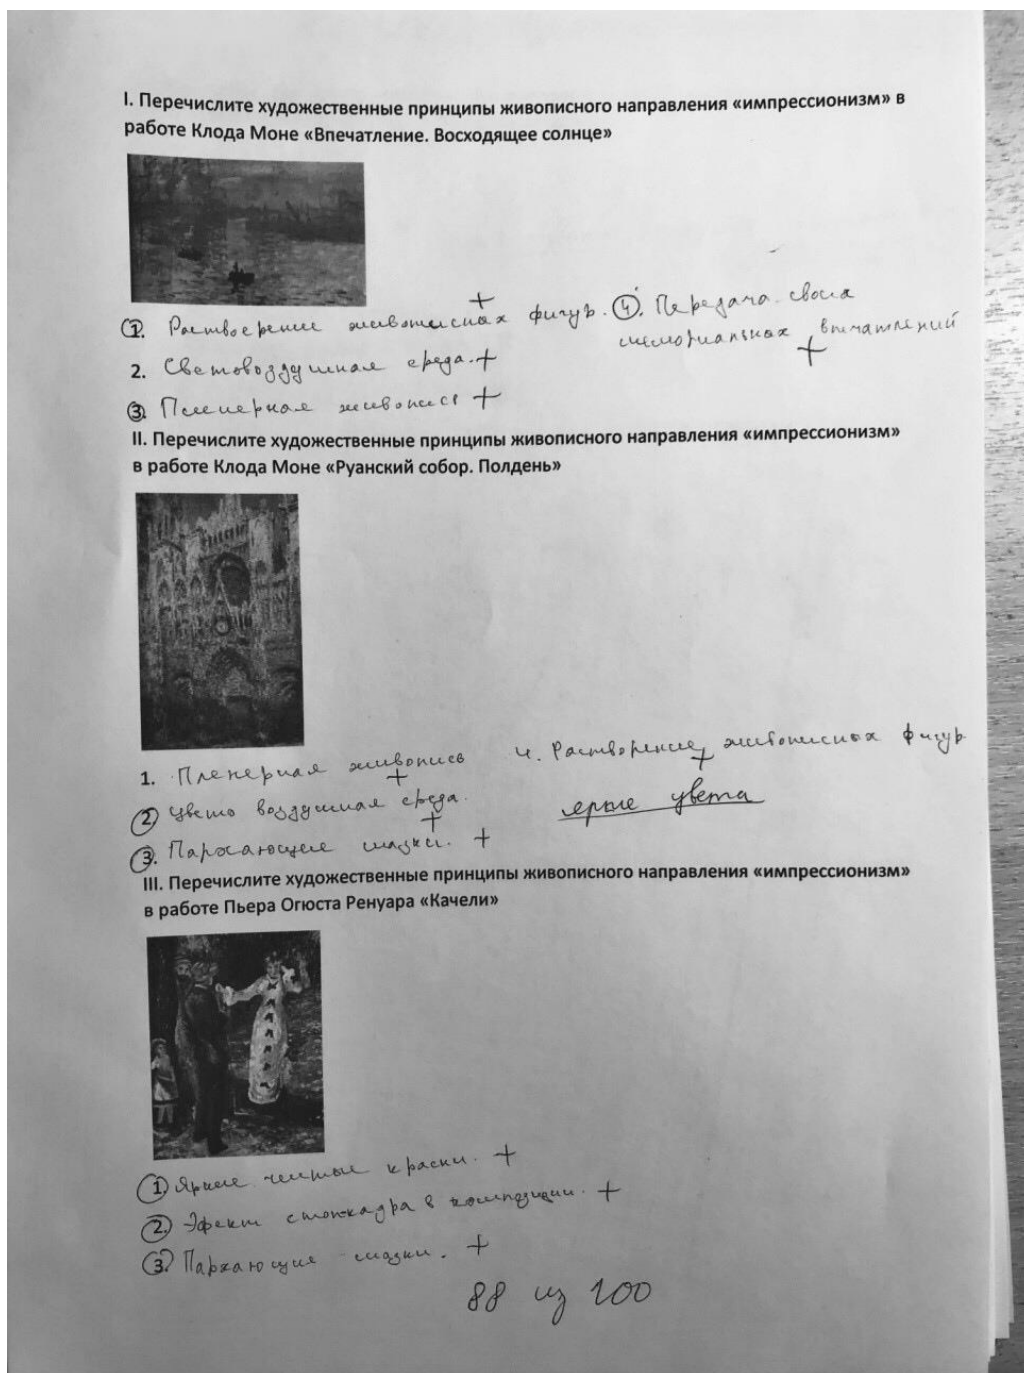 I. Перечислите художественные принципы живописного направления «импрессионизм» в
работе Клода Моне «Впечатление. Восходящее солнце»
1. Растворение живописных фигур. +
2. Световоздушная среда. +
3. Пленерная живопись +
4. Передача своих
впечатлений +
II. Перечислите художественные принципы живописного направления «импрессионизм»
в работе Клода Моне «Руанский собор. Полдень»
1. Пленерная живопись +
2 Цвето воздушная среда. +
3. Пархающие мазки. +
4. Растворение живописных фигур +
яркие цвета
III. Перечислите художественные принципы живописного направления «импрессионизм»
в работе Пьера Огюста Ренуара «Качели»
1. Яркие чистые краски. +
2. Эфект стопкадра в композиции. +
3. Пархающие мазки. +
88 из 100